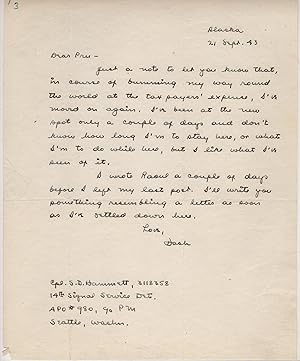 3
Alaska
21 Sept. 43
Dear Pru -
Just a note to let you know that,
in course of bumming my way round
the world at the tax payers' expense, I've
moved on again. I've been at the new
spot only a couple of days and don't
know how long I'm to stay here, or what
I'm to do while here, but I like what I've
seen of it.
I wrote Raoul a couple of days
before I left my last post. I'll write you
something resembling a letter as soon
as I'm settled down here.
Love,
Dash
Cpl. S. D. Hammett, 3118358
14th Signal Service Det.
APO # 980, c/o P M
Seattle, Washn.